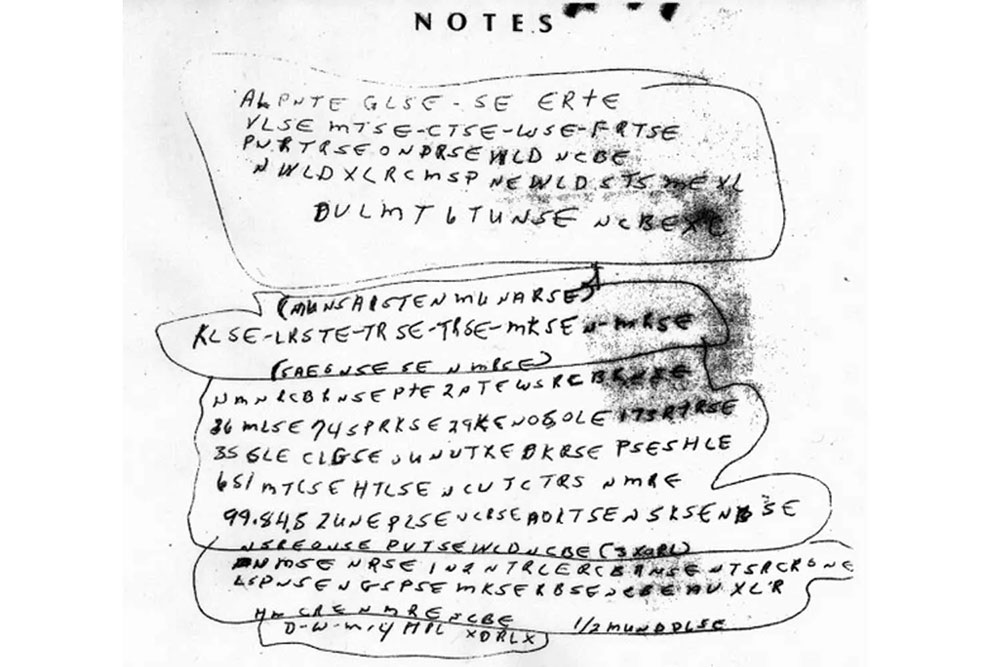 NOTES
ALPNTE GLSE - SE ERTE
VLSE MTSE-CTSE-WSE-FRTSE
PNRTRSE ONDRSE WLD NCBE
NWLDXLRCMSP NEWLDSTS MEXL
DULMT 6 TUNSE NCBEXC
(MUNSAISTEN MUNARSE)
KLSE-LRSTE-TRSE-TRSE-MKSEN-MRSE
(SAEGNSE SE N MRSE)
NMNRCBRNSE PTE 2 PTE WSRCBRNSE
36 MLSE 74 SPRKSE 29KENOSOLE 173RTRSE
35 GLE CLGSE UNUTXE DKRSE PSESHLE
651 MTCSE HTLSE NCUTCTRS NMRE
99.84.5 2UNEPLSE NCRSE AOLTSE NSKSENB SE
NSREONSE PUTSE WLD NCBE (3XORL)
NMSE NRSE IN2 NTRLERCBRNSE NTSRCRONE
LSPNSE NGSPSE MKSERBSE NCBE AU XL'R
HM CRE NMRE NCBE 1/2 MUNDDLSE
D-W-M-4 HPL XDRLX